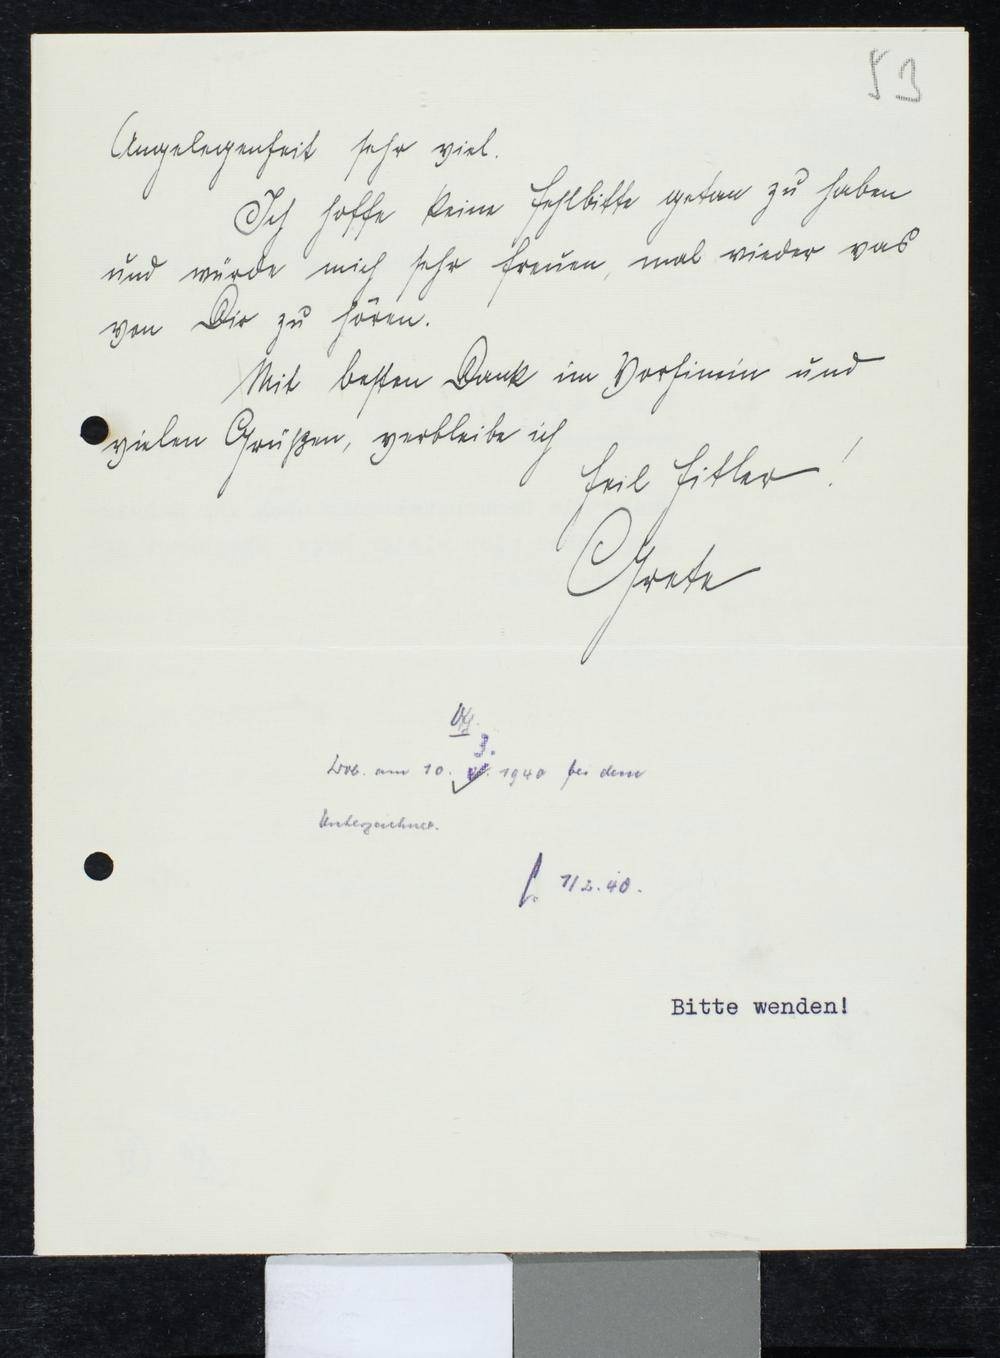 53
Angelegenheit sehr viel.
Ich hoffe keine Fehlbitte getan zu haben
und würde mich sehr freuen, mal wieder was
von Dir zu hören.
Mit besten Dank im Vorhinein und
vielen Grüßen, verbleibe ich
Heil Hitler!
Grete
Vfg.
3.
am 10. 1940 bei dem
Unterzeichner.
1/2.40.
Bitte wenden!